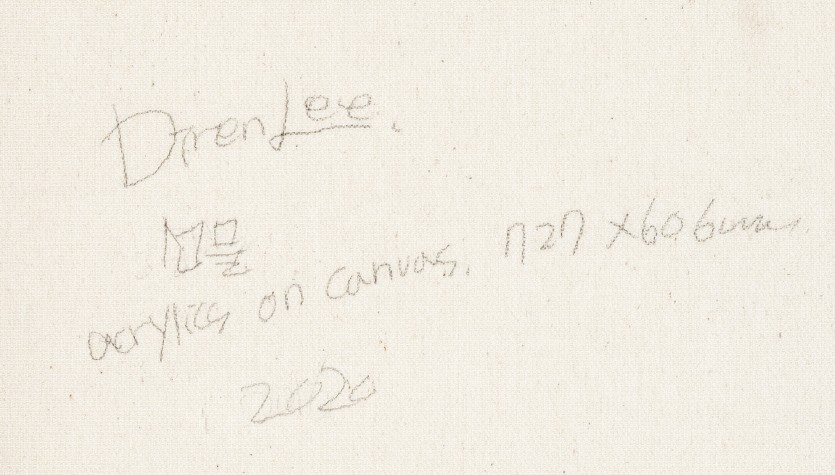 Dren Lee.
선물
acrylics on canvas. 727 x 606mm
2020